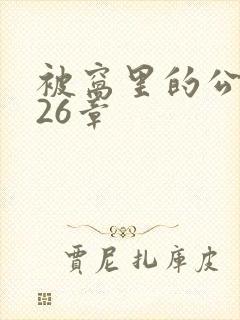 被窝里的公
26章
賈尼扎库皮